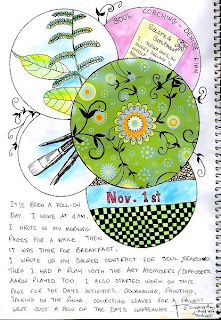 SOUL COACHING - DAY
Nov. 1st
IT'S BEEN A FULL-ON
DAY. I WOKE AT 4AM.
I WROTE IN MY MORNING
PAGES FOR A WHILE. THEN
IT WAS TIME FOR BREAKFAST.
I WROTE UP MY SACRED CONTRACT FOR SOUL
THEN I HAD A PLAY WITH THE ART ATOMISERS / DIFFUSERS.
AARON PLAYED TOO. I ALSO STARTED WORK ON THIS
PAGE FOR THE DAYS ACTIVITIES. JOURNALING, PAINTING,
TALKING ON THE PHONE, COLLECTING LEAVES FOR A PROJECT
WERE JUST A FEW OF THE DAYS HAPPENINGS.